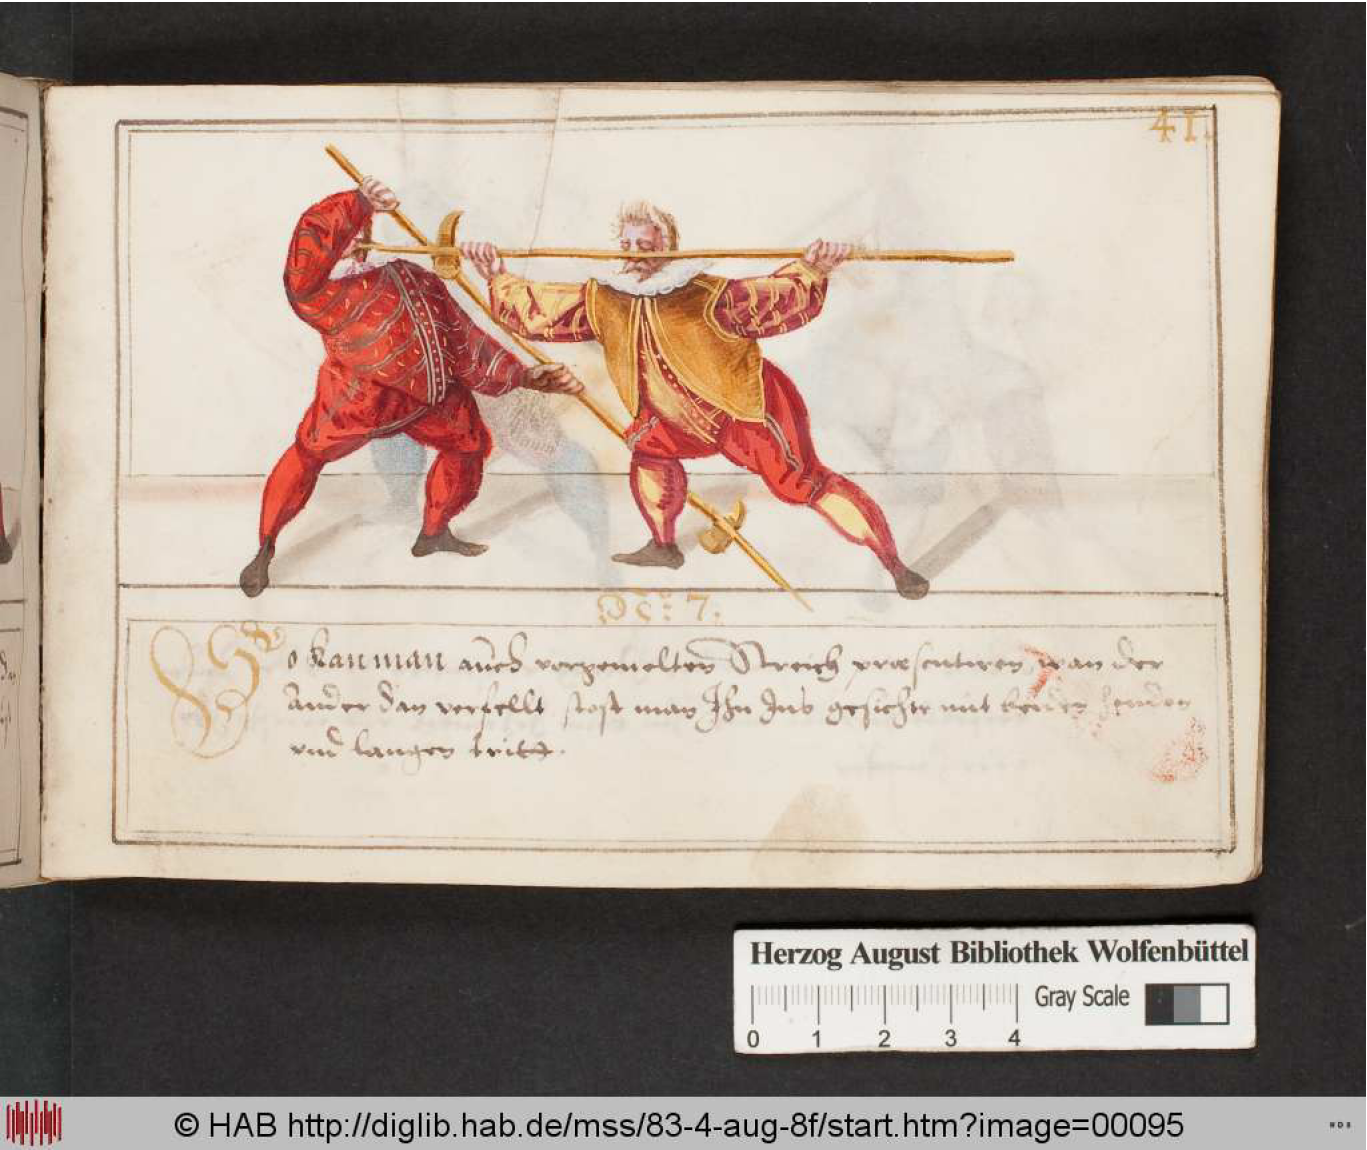 41.
7.
So kan man auch vorgemelten Streich præsentiren, wan der
ander dan verfellt stost man Ihn Ins gesichte mit beiden henden
und langen tritt.
Herzog August Bibliothek Wolfenbüttel
Gray Scale
0 1 2 3 4
© HAB http://diglib.hab.de/mss/83-4-aug-8f/start.htm?image=00095